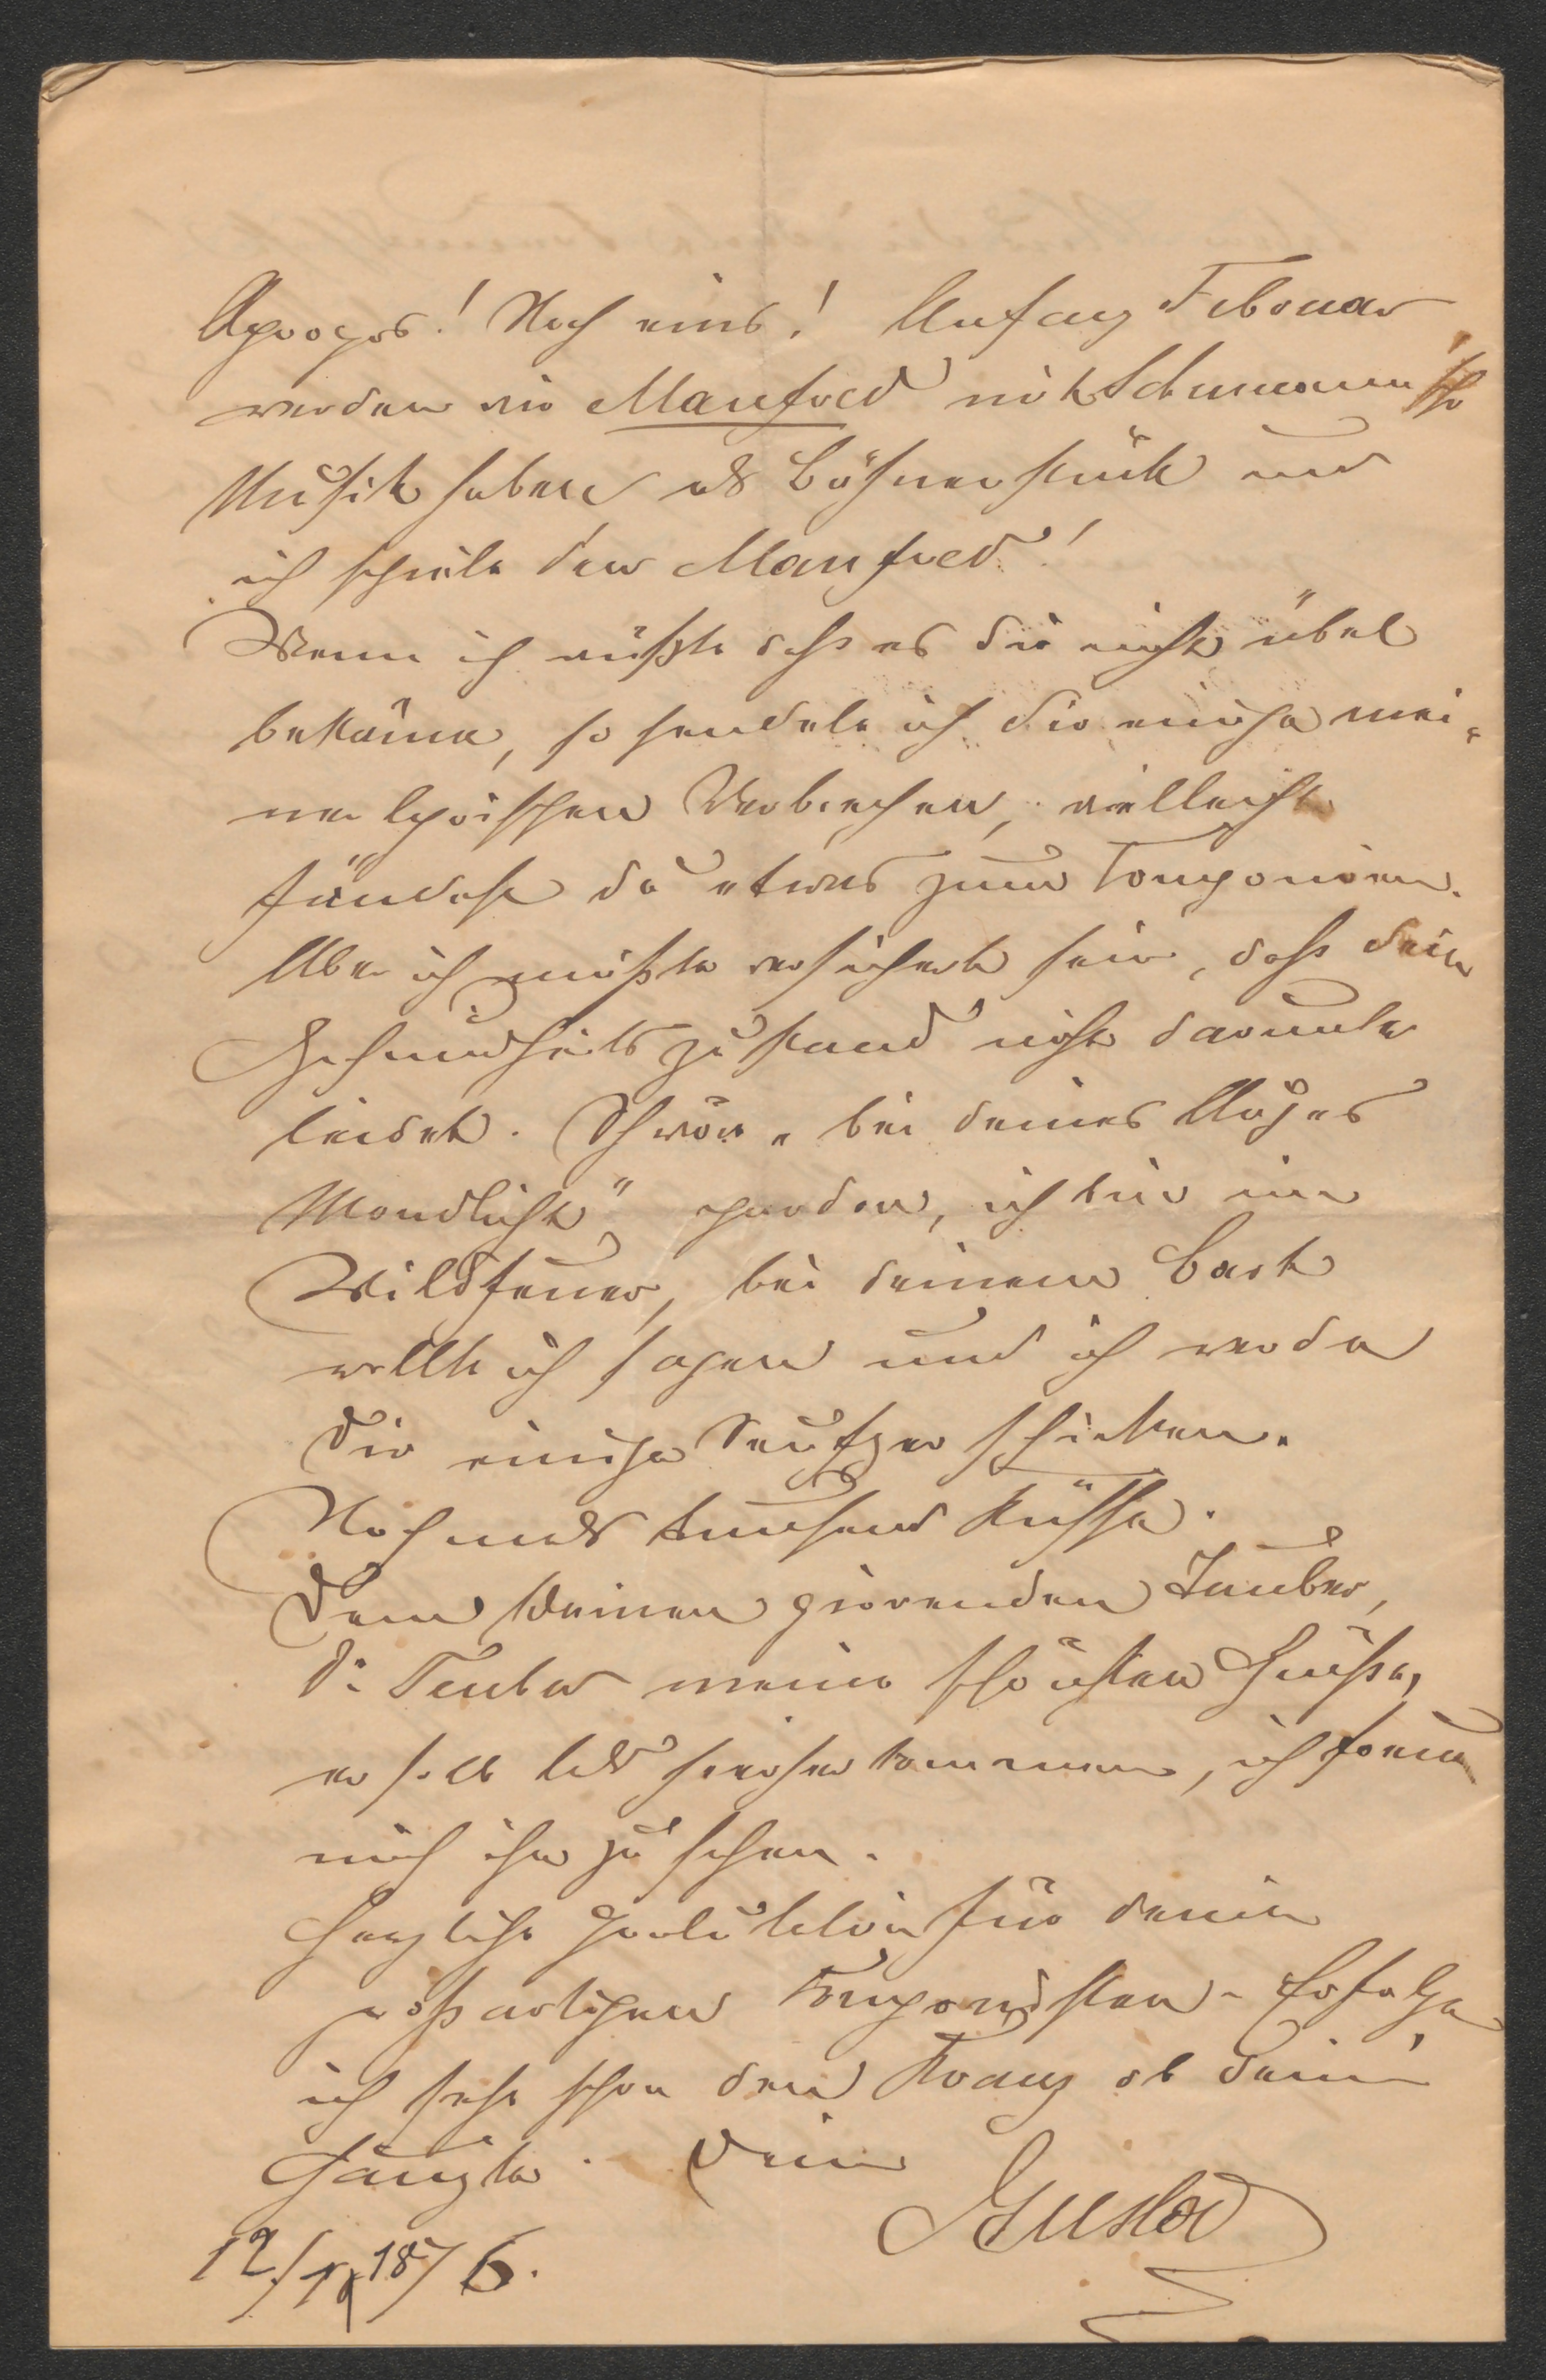 Apropos! Noch eins! Anfang Februar
werden wir Manfred mit Schumann'scher
Musik haben als Bühnenstück und
ich spiele den Manfred!
Wenn ich wüßte daß es dir nicht übel
bekäme, so sendete ich dir einige mei-
ner lyrischen Verbrechen, vielleicht
fändest du etwas zum Componieren.
Aber ich müßte versichert sein, daß dein
Gesundheitszustand nicht darunter
leidet. Schwör „bei deines Auges
Mondlicht" pardon, ich bin im
Wildfeuer, bei deinem Bart
wollte ich sagen und ich werde
dir einige Seufzer schicken.
Nochmals tausend Küsse.
Dem kleinen girrenden Tauber,
d: Teuber meine schönsten Grüße,
er soll bald hierher kommen, ich freue
mich ihn zu sehen.
Herzliche Gratulation für deine
großartigen Componisten-Erfolge
ich sehe schon den Kranz ob deine'
Haupte. Dein
Gustav
12/1 1876.